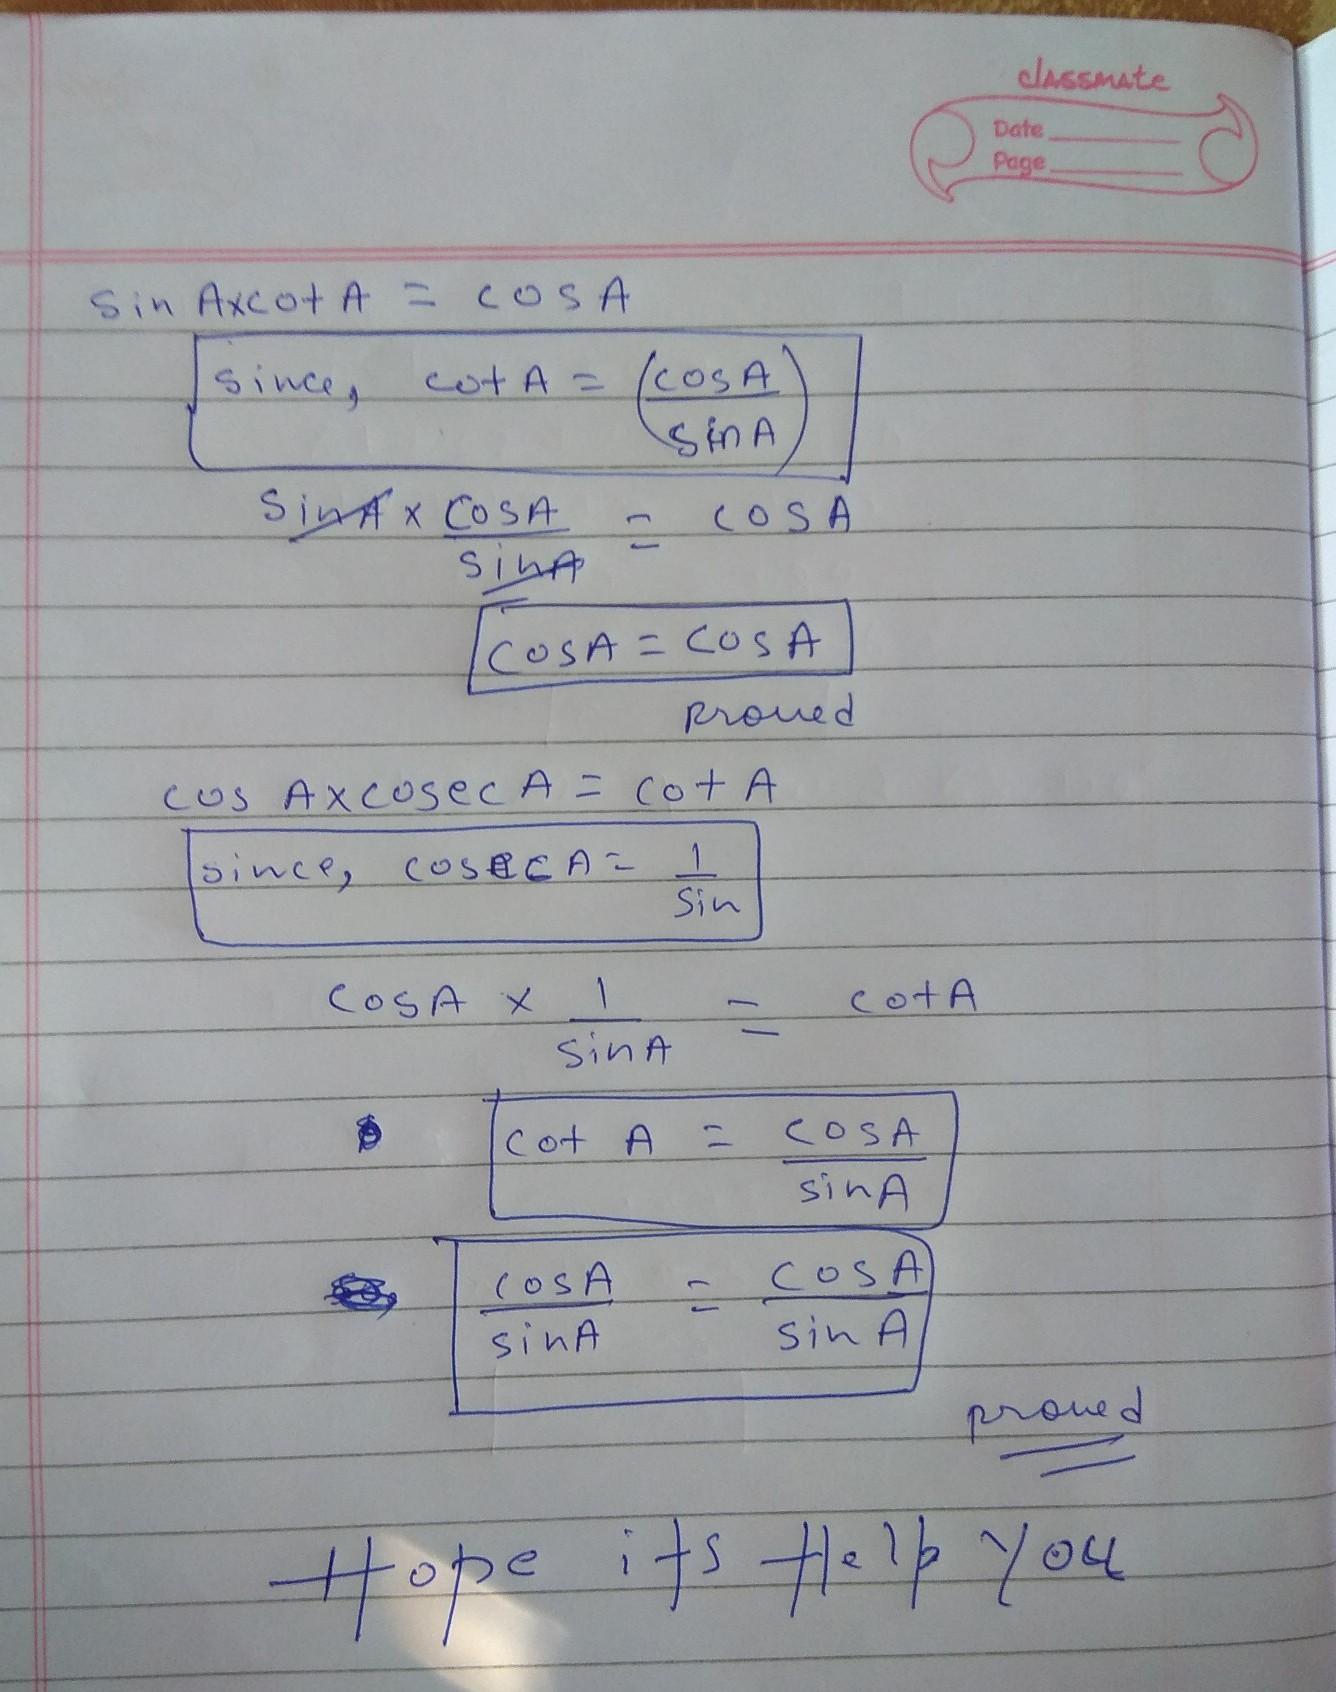 classmate
Date
Page
sin A×cot A = cos A
since, cot A = (cos A / sin A)
sin A × cos A / sin A = cos A
cos A = cos A
proved
cos A×cosec A = cot A
since, cosec A = 1 / sin
cos A × 1 / sin A = cot A
cot A = cos A / sin A
cos A / sin A = cos A / sin A
proved
Hope its Help You